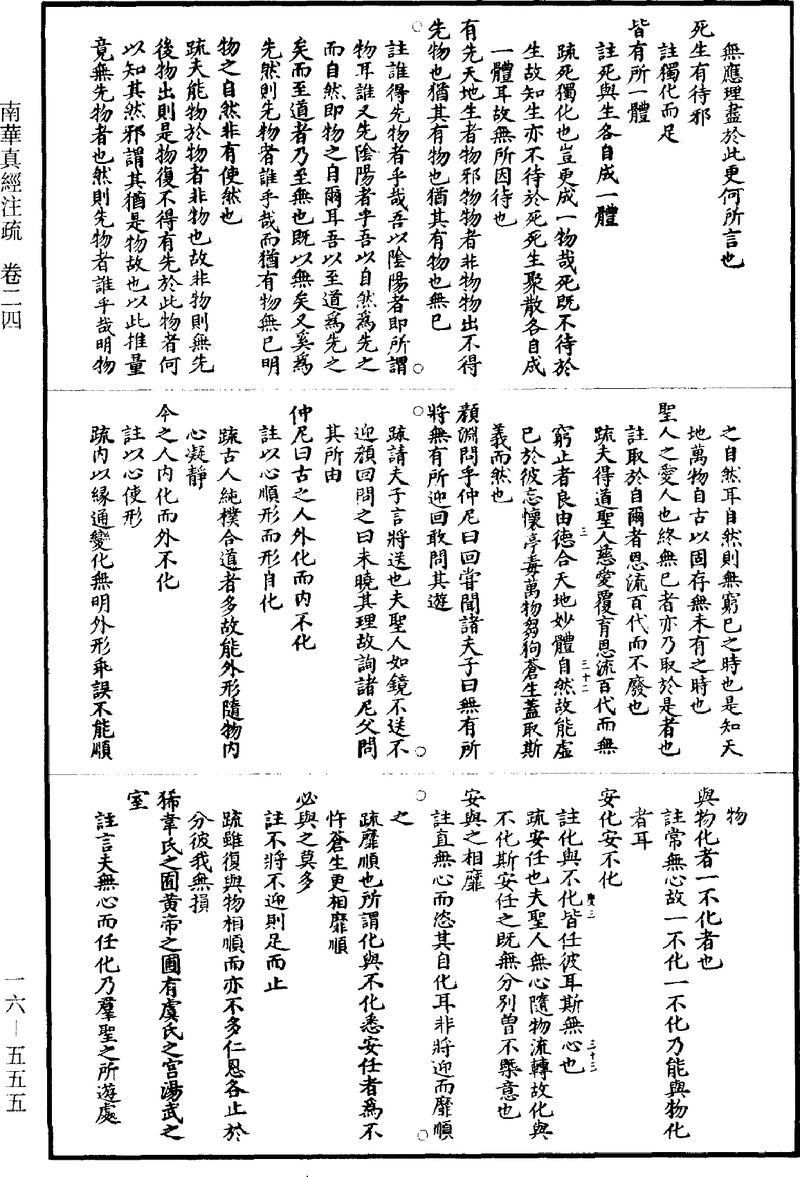 無應理盡於此更何所言也
死生有待邪
註獨化而足
皆有所一體
註死與生各自成一體
疏死獨化也豈更成一物哉死既不待於
生故知生亦不待於死死生聚散各自成
一體耳故無所因待也
有先天地生者物邪物物者非物物出不得
先物也猶其有物也猶其有物也無已
註誰得先物者乎哉吾以陰陽者即所謂
物耳誰又先陰陽者乎吾以自然為先之
而自然即物之自爾耳吾以至道為先之
矣而至道者乃至無也既以無矣又奚為
先然則先物者誰乎哉而猶有物無已明
物之自然非有使然也
疏夫能物於物者非物也故非物則無先
後物出則是物復不得有先於此物者何
以知其然邪謂其猶是物故也以此推量
竟無先物者也然則先物者誰乎哉明物
之自然耳自然則無窮已之時也是知天
地萬物自古以固存無未有之時也
聖人之愛人也終無已者亦乃取於是者也
註取於自爾者恩流百代而不廢也
疏夫得道聖人慈愛覆育恩流百代而無
窮止者良由德合天地妙體自然故能虛
已於彼忘懷亭毒萬物芻狗蒼生蓋取斯
義而然也
顏淵問乎仲尼曰回嘗聞諸夫子曰無有所
將無有所迎回敢問其遊
疏請夫子言將送也夫聖人如鏡不送不
迎顏回問之曰未曉其理故詢諸尼父問
其所由
仲尼曰古之人外化而內不化
註以心順形而形自化
疏古人純樸合道者多故能外形隨物內
心凝靜
今之人內化而外不化
註以心使形
疏內以緣通變化無明外形乖誤不能順
物
與物化者一不化者也
註常無心故一不化一不化乃能與物化
者耳
安化安不化
註化與不化皆任彼耳斯無心也
疏安任也夫聖人無心隨物流轉故化與
不化斯安任之既無分別曾不槩意也
安與之相靡
註直無心而恣其自化耳非將迎而靡順
之
疏靡順也所謂化與不化悉安任者為不
忤蒼生更相靡順
必與之莫多
註不將不迎則足而止
疏雖復與物相順而亦不多仁恩各止於
分彼我無損
狶韋氏之囿黃帝之圃有虞氏之宮湯武之
室
註言夫無心而任化乃羣聖之所遊處
三十二
三十三
南華真經注疏 卷二四
一六—五五五